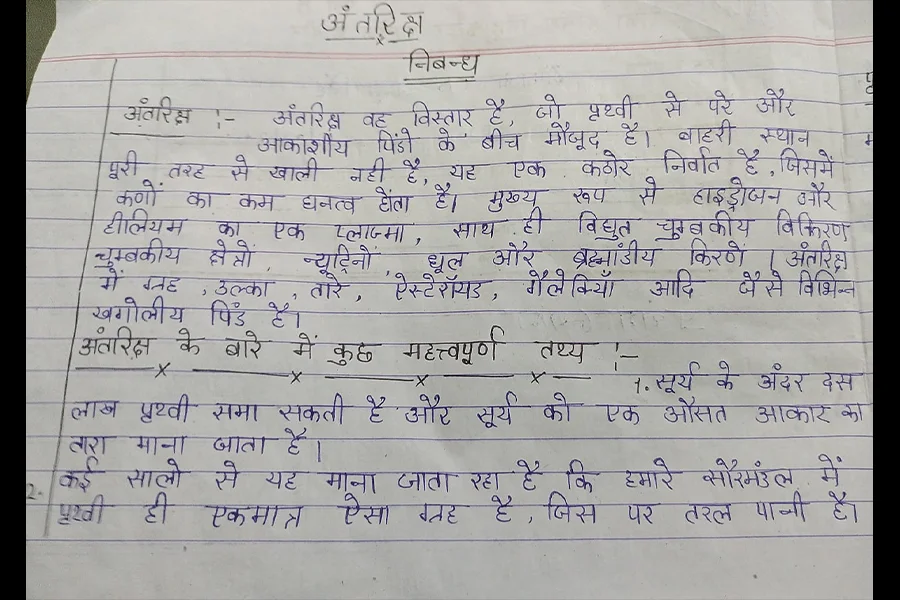 अंतरिक्ष
निबन्ध
अंतरिक्ष :- अंतरिक्ष वह विस्तार है, जो पृथ्वी से परे और
आकाशीय पिंडो के बीच मौजूद है। बाहरी स्थान
पूरी तरह से खाली नही है, यह एक कठोर निर्वात है, जिसमें
कणों का कम घनत्व होता है। मुख्य रूप से हाइड्रोजन और
हीलियम का एक प्लाज्मा, साथ ही विद्युत चुम्बकीय विकिरण
चुम्बकीय क्षेत्रों, न्यूट्रिनों, धूल और ब्रह्मांडीय किरणें। अंतरिक्ष
में ग्रह, उल्का, तारे, ऐस्टेरॉयड, गैलेक्सियाँ आदि जैसे विभिन्न
खगोलीय पिंड है।
अंतरिक्ष के बारे में कुछ महत्त्वपूर्ण तथ्य :-
1. सूर्य के अंदर दस
लाख पृथ्वी समा सकती है और सूर्य को एक औसत आकार का
तारा माना जाता है।
2. कई सालो से यह माना जाता रहा है कि हमारे सौरमंडल में
पृथ्वी ही एकमात्र ऐसा ग्रह है, जिस पर तरल पानी है।